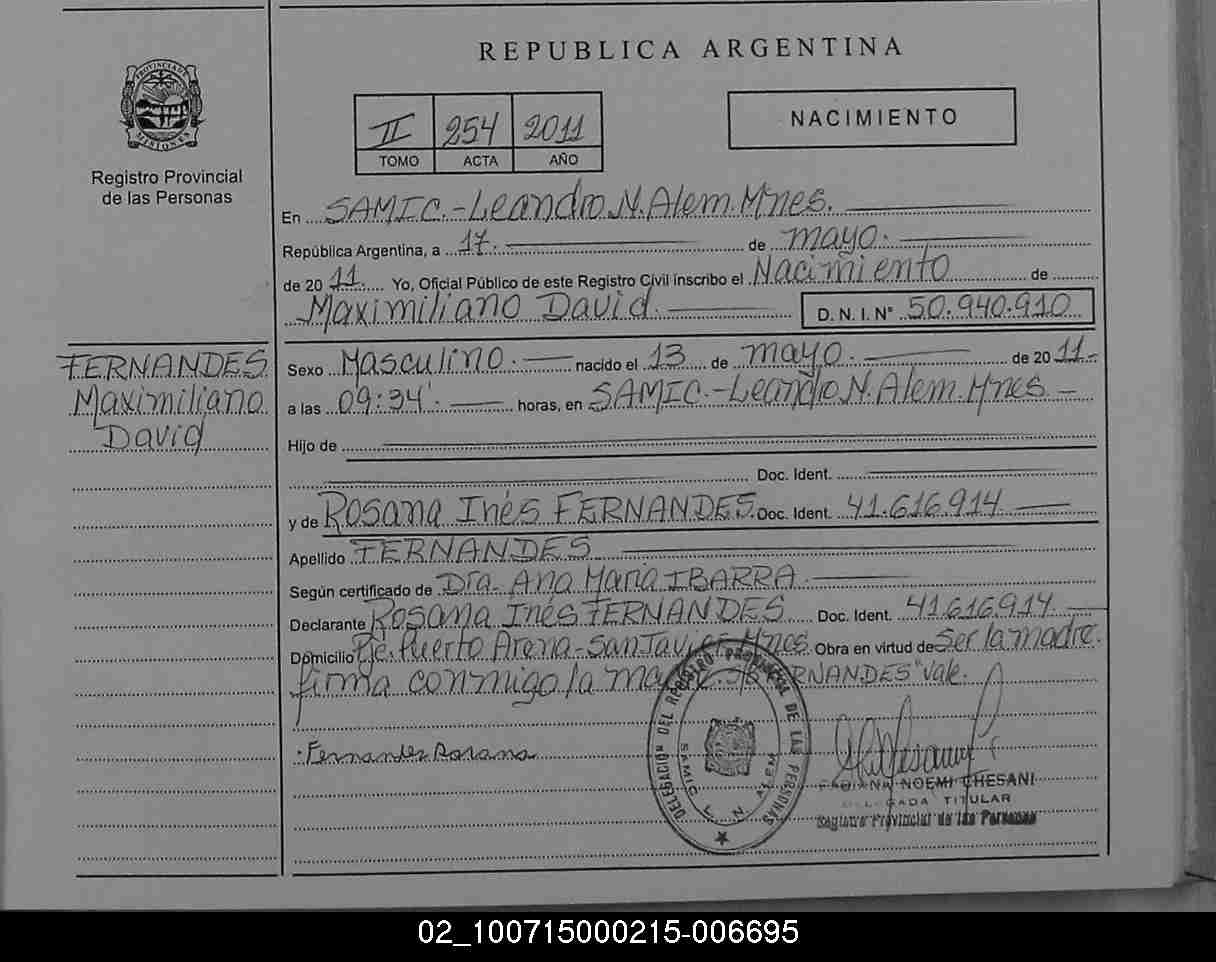 REPUBLICA ARGENTINA
PROVINCIA DE
MISIONES
Registro Provincial
de las Personas
II 254 2011
TOMO ACTA AÑO
NACIMIENTO
En SAMIC.-Leandro.N.Alem.Mnes.
República Argentina, a 17. de mayo.
de 2011. Yo, Oficial Público de este Registro Civil inscribo el Nacimiento de
Maximiliano David. D. N. I. Nº 50.940.910
FERNANDES
Maximiliano
David
Sexo Masculino. nacido el 13 de mayo. de 2011.-
a las 09:34'. horas, en SAMIC.-Leandro.N.Alem.Mnes.
Hijo de
Doc. Ident.
y de Rosana Inés FERNANDES. Doc. Ident. 41.616.914.
Apellido FERNANDES
Según certificado de Dra. Ana Maria IBARRA.
Declarante Rosana Inés FERNANDES Doc. Ident. 41616.914.
Domicilio Pje. Puerto Arena-San Javier Mnes. Obra en virtud de Ser la madre.
firma conmigo la S/B "FERNANDES" Vale.
Fernandes Rosana
DELEGACION DEL REGISTRO PROVINCIAL DE LAS PERSONAS
SAMIC L. N. ALEM
FABIANA NOEMI CHESANI
DELEGADA TITULAR
Registro Provincial de las Personas
02_100715000215-006695